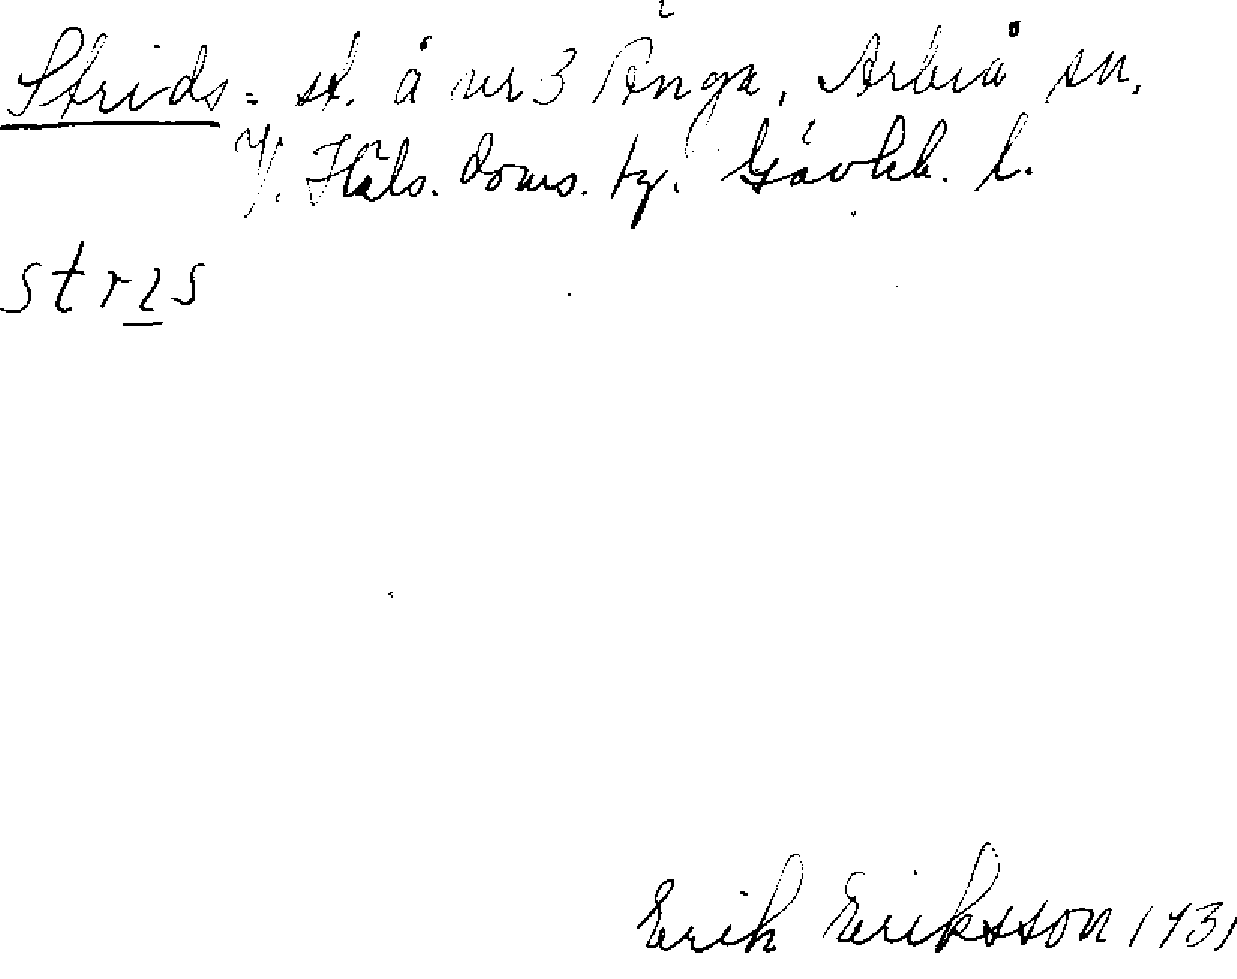 Strids = st. å nr 3 Änga, Arbrå sn.
V. Häls. doms. tg. Gävleb. l.
strɩs
Erik Eriksson 1931